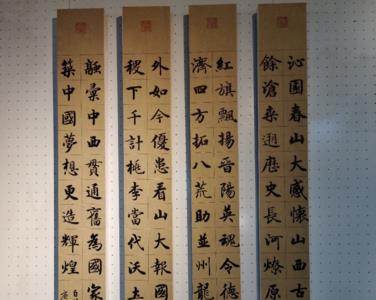 沁園春山大感懷山西古
餘滄桑遡歷史長河燎原
紅旗飄揚晉陽英魂令德
濟四方拓八荒助並州龍
外如今優患看山大報國
稷下千計桃李當代沃
融彙中西貫通奮為國家
築中國夢想更造輝煌